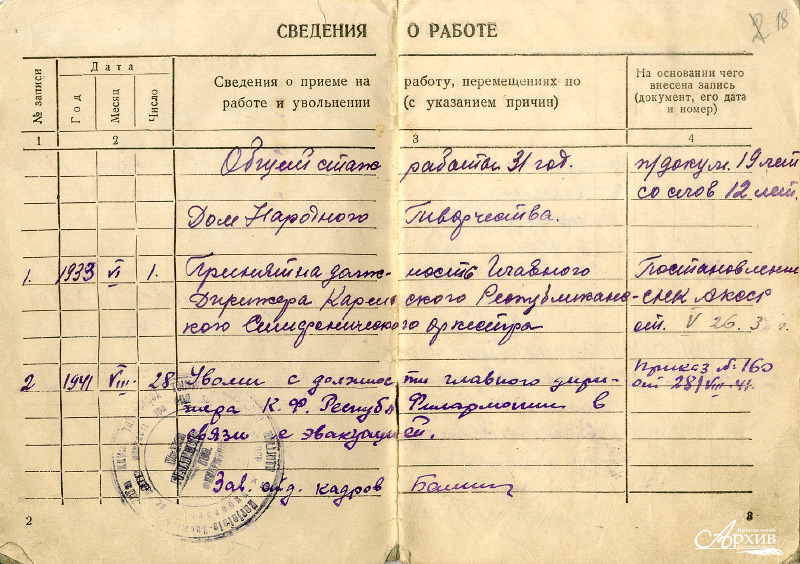 18
СВЕДЕНИЯ О РАБОТЕ
№ записи
Дата
Год
Месяц
Число
Сведения о приеме на работу, перемещениях по
работе и увольнении (с указанием причин)
На основании чего
внесена запись
(документ, его дата
и номер)
1 2 3 4
Общий стаж работы 31 год. п/докум. 19 лет
со слов 12 лет.
Дом Народного Творчества.
1. 1933 VI 1. Принят на долж- ность Главного Постановление
Дирижера Карельского Республиканс- СНК АКССР
кого Симфонического оркестра от V 26. 3
2 1941 VIII 28 Уволен с должности главного дири- Приказ № 160
жера К.Ф. Республ Филармонии в от 28/VIII-41.
связи с эвакуацией.
Зав. отд. кадров
2
3
Национальный
Архив